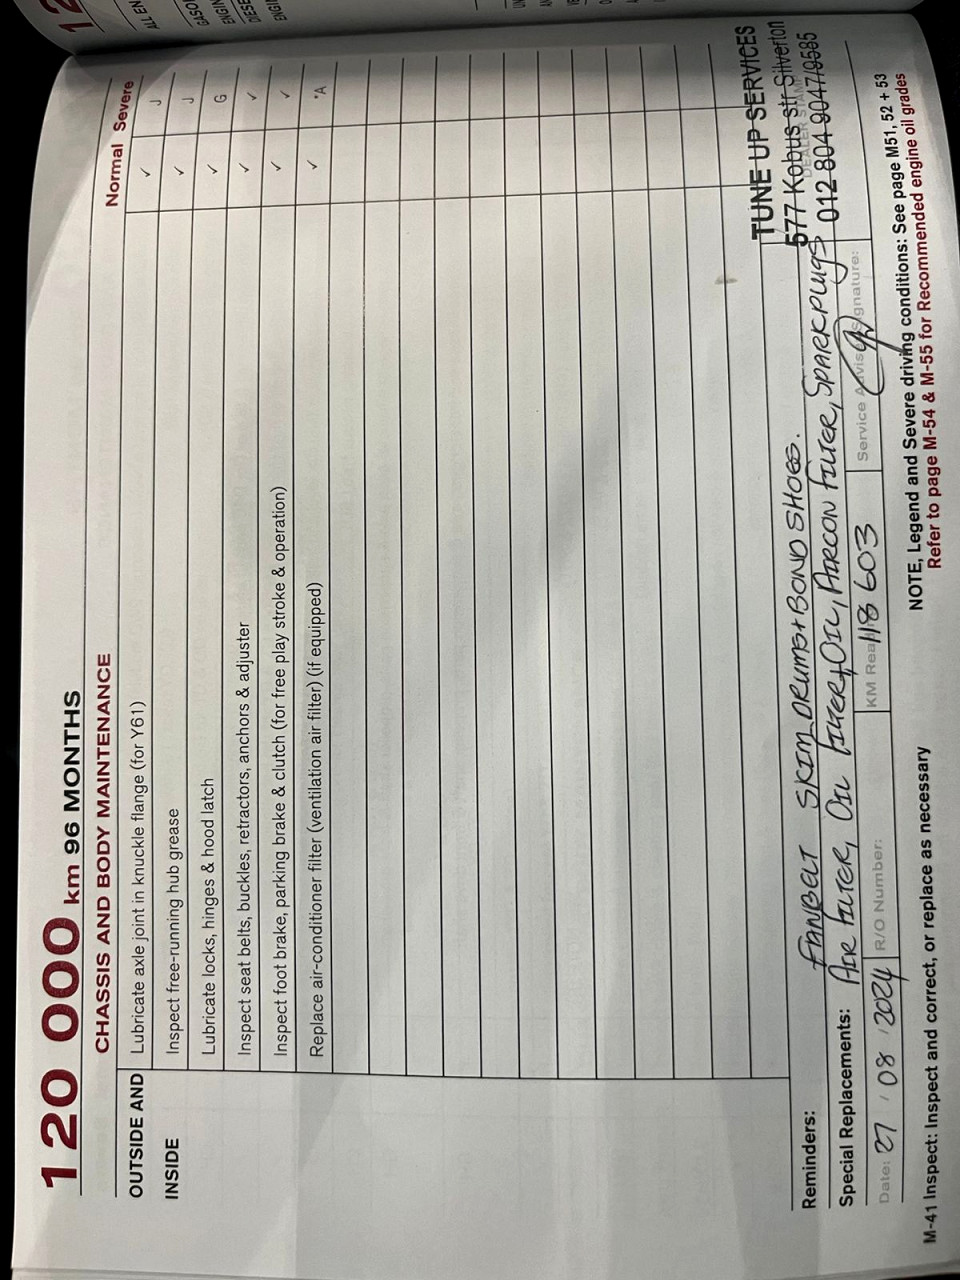 120 000 km 96 MONTHS
CHASSIS AND BODY MAINTENANCE
Normal Severe
OUTSIDE AND
INSIDE
Lubricate axle joint in knuckle flange (for Y61) ✓ J
Inspect free-running hub grease ✓ J
Lubricate locks, hinges & hood latch ✓ G
Inspect seat belts, buckles, retractors, anchors & adjuster ✓ ✓
Inspect foot brake, parking brake & clutch (for free play stroke & operation) ✓ ✓
Replace air-conditioner filter (ventilation air filter) (if equipped) ✓ *A
TUNE UP SERVICES
577 Kobus str Silverton
DEALER STAMP
012 804 9047/9585
Reminders: FANBELT SKIM DRUMS + BOND SHOES.
Special Replacements: AIR FILTER, OIL FILTER + OIL, AIRCON FILTER, SPARKPLUGS
Date: 27 / 08 / 2024 R/O Number: KM Rea 118 603 Service Advisor Signature:
NOTE, Legend and Severe driving conditions: See page M51, 52 + 53
M-41 Inspect: Inspect and correct, or replace as necessary
Refer to page M-54 & M-55 for Recommended engine oil grades
12
ALL EN
GASOL
ENGIN
DIESE
ENGI